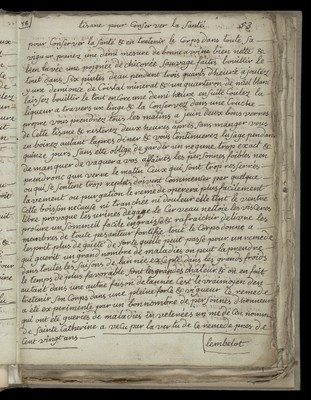 tisane pour Conserver la Santé
pour Conserver la Santé & en tretenir le Corps dans toute sa
vigeur prenez une demi mesure de bonne avoine bien nette &
bien lavée une poignée de chicorée sauvage faites bouillir le
tout dans six pintes deau pendant trois quarts dheure ajoutez
y une demi once de Cristal mineral & un quarteron de miel blanc
laissez bouillir le tout encore une demi heure ensuite Coulez la
liqueur a travers un linge & la Conservez dans une Cruche
vous prendrez tous les matins a jeun deux bons verres
de Cette tisane & resterez deux heures apres sans manger vous
en boirez autant lapres diner & vous Continuerez lusage pendant
quinze jours sans etre obligé de garder un regime trop exact &
de manquer de vaquer a vos affaires les personnes foibles nen
prendront quun verre le matin Ceux qui sont trop resserrés
ou qui se sentent trop replets doivent Commencer par quelque
lavement ou purgation le remede operera plus facilement
Cette boisson ne Cause ni tranchée ni douleur elle tient le ventre
libre provoque les urines degage le Cerveau nettoie les visceres
procure un sommeil facile engraisse & rafraichit delivre les
membres de toute pesanteur fortifie tout le Corps donne a
lesprit plus de gaieté de sorte quelle peut passer pour un remede
qui guerit un grand nombre de maladies on peut la prendre
dans toutes les saisons de lannée excepté dans les grands froids
le temps de plus favorable sont les grandes chaleur & on en fait
autant dans une autre saison de lannée Cest le vrai moyen den
tretenir son Corps dans une pleine force & vigueur Ce remede
a été experimenté par un bon nombre de personnes dhonneur
qui ont été gueries de maladies
de Sainte Catherine a vecu par la vertu de Ce remede pres de
Cent vingt ans
Lembelot